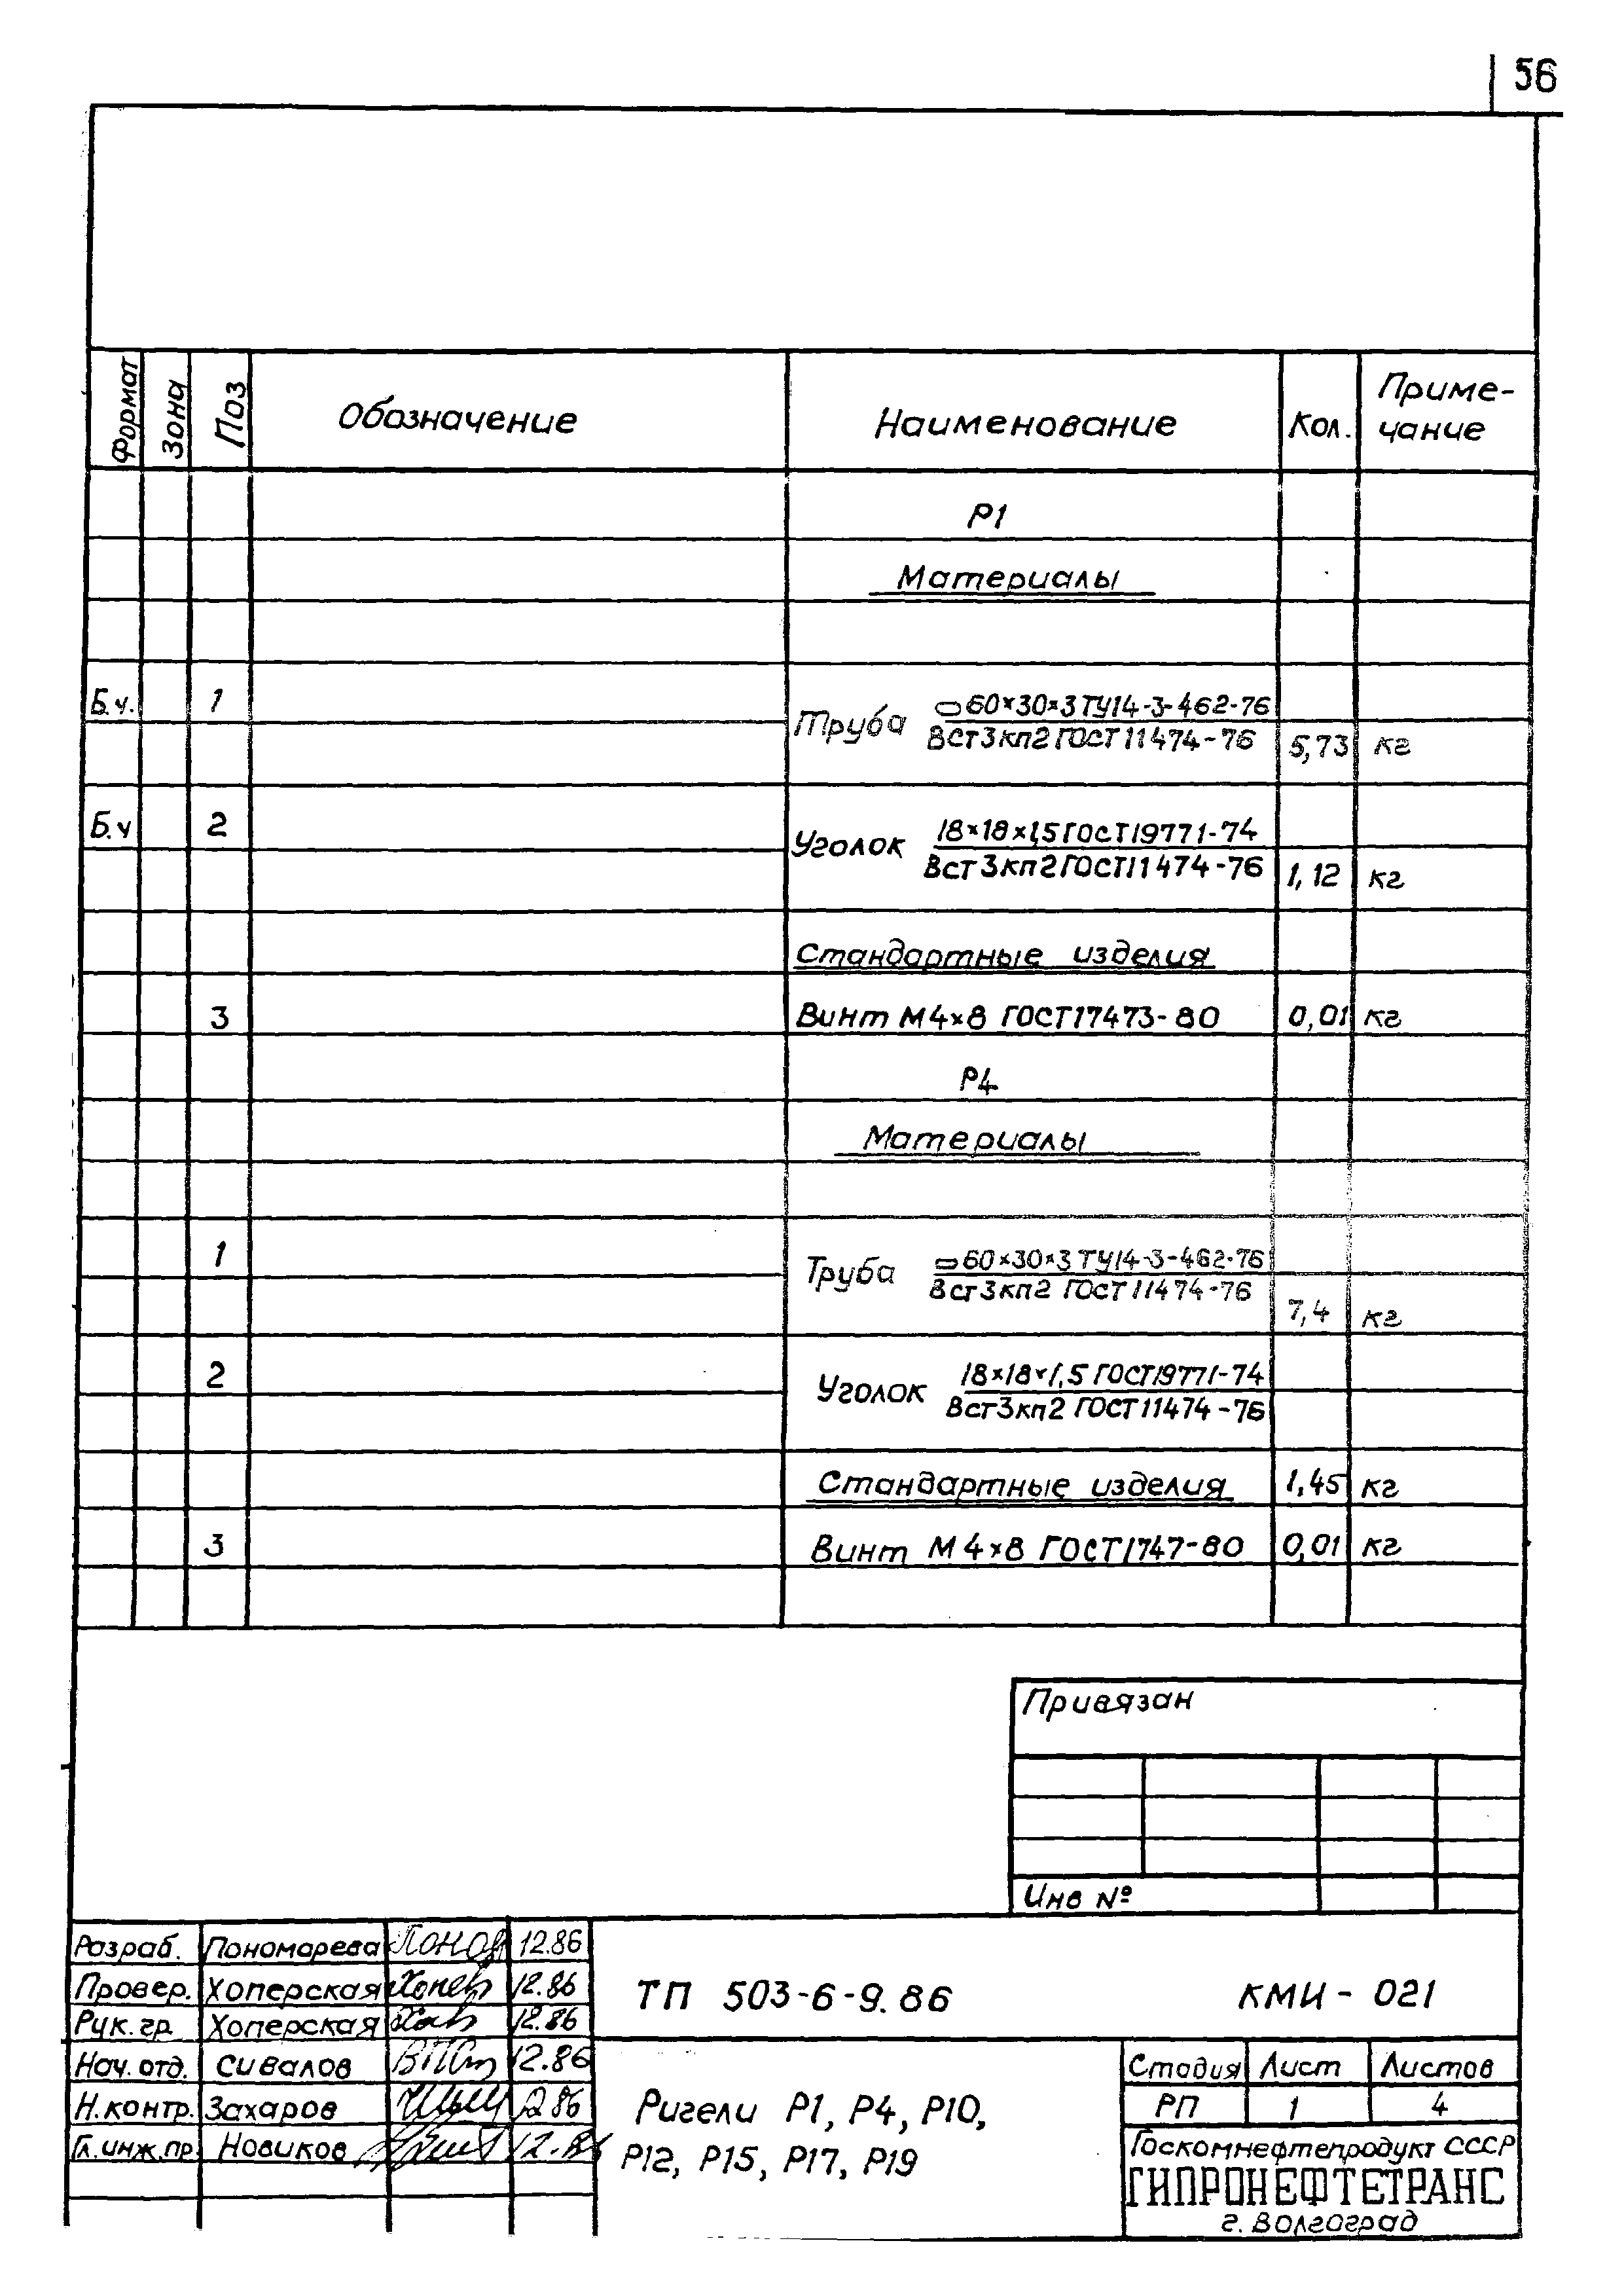 56
Формат Зона Поз Обозначение Наименование Кол. Приме-
чание
Р1
Материалы
Б.ч. 1 Труба ▭60×30×3 ТУ14-3-462-76
ВСт3кп2 ГОСТ 11474-76 5,73 кг
Б.ч 2 Уголок 18×18×1,5 ГОСТ19771-74
Вст3кп2 ГОСТ11474-76 1,12 кг
Стандартные изделия
3 Винт М4×8 ГОСТ17473-80 0,01 кг
Р4
Материалы
1 Труба ▭60×30×3 ТУ14-3-462-76
Вст3кп2 ГОСТ 11474-76 7,4 кг
2 Уголок 18×18×1,5 ГОСТ19771-74
Вст3кп2 ГОСТ11474-76
Стандартные изделия 1,45 кг
3 Винт М4×8 ГОСТ1747-80 0,01 кг
Привязан
Инв №
Розраб. Пономарева 12.86
Провер. Хоперская 12.86
Рук. гр. Хоперская 12.86
Нач. отд. Сивалов 12.86
Н.контр. Захаров 12.86
Гл.инж.пр. Новиков 12.86
ТП 503-6-9.86 КМИ-021
Ригели Р1, Р4, Р10,
Р12, Р15, Р17, Р19
Стадия Лист Листов
РП 1 4
Госкомнефтепродукт СССР
ГИПРОНЕФТЕТРАНС
г. Волгоград